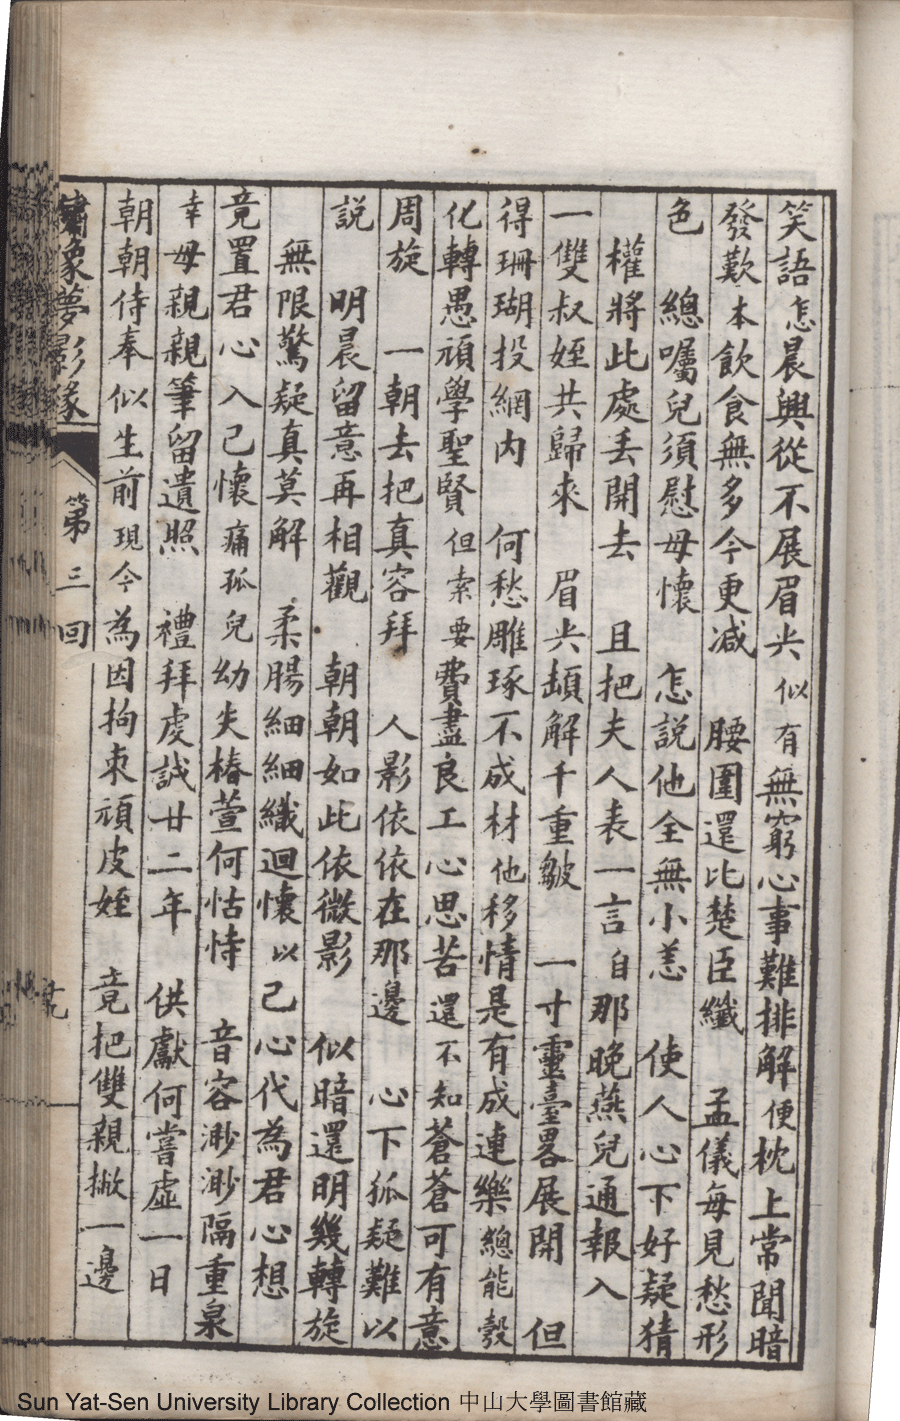 笑語怎晨興從不展眉尖似有無窮心事難排解便枕上常聞暗
發歎本飲食無多今更減　腰圍還比楚臣纖　孟儀每見愁形
色　總囑兒須慰母懷　怎說他全無小恙　使人心下好疑猜
權將此處丢開去　且把夫人表一言自那晚燕兒通報入
一雙叔姪共歸來　眉尖頡解千重皺　一寸靈臺畧展開　但
得珊瑚投網内　何愁雕琢不成材他移情是有成連樂總能彀
化轉愚頑學聖賢但索要費盡良工心思苦還不知蒼蒼可有意
周旋　一朝去把真容拜　人影依依在那邊　心下狐疑難以
說　明晨留意再相觀　朝朝如此依微影　似暗還明幾轉旋
無限驚疑真莫解　柔腸細細纖迴懷以己心代為君心想
竟置君心入己懷痛孤兒幼失椿萱何怙恃　音容渺渺隔重泉
幸母親親筆留遺照　禮拜虔誠廿二年　供獻何嘗虛一日
朝朝侍奉似生前現今為因拘束頑皮姪　竟把雙親撇一邊
繡象夢影緣　第三回
Sun Yat-Sen University Library Collection 中山大學圖書館藏